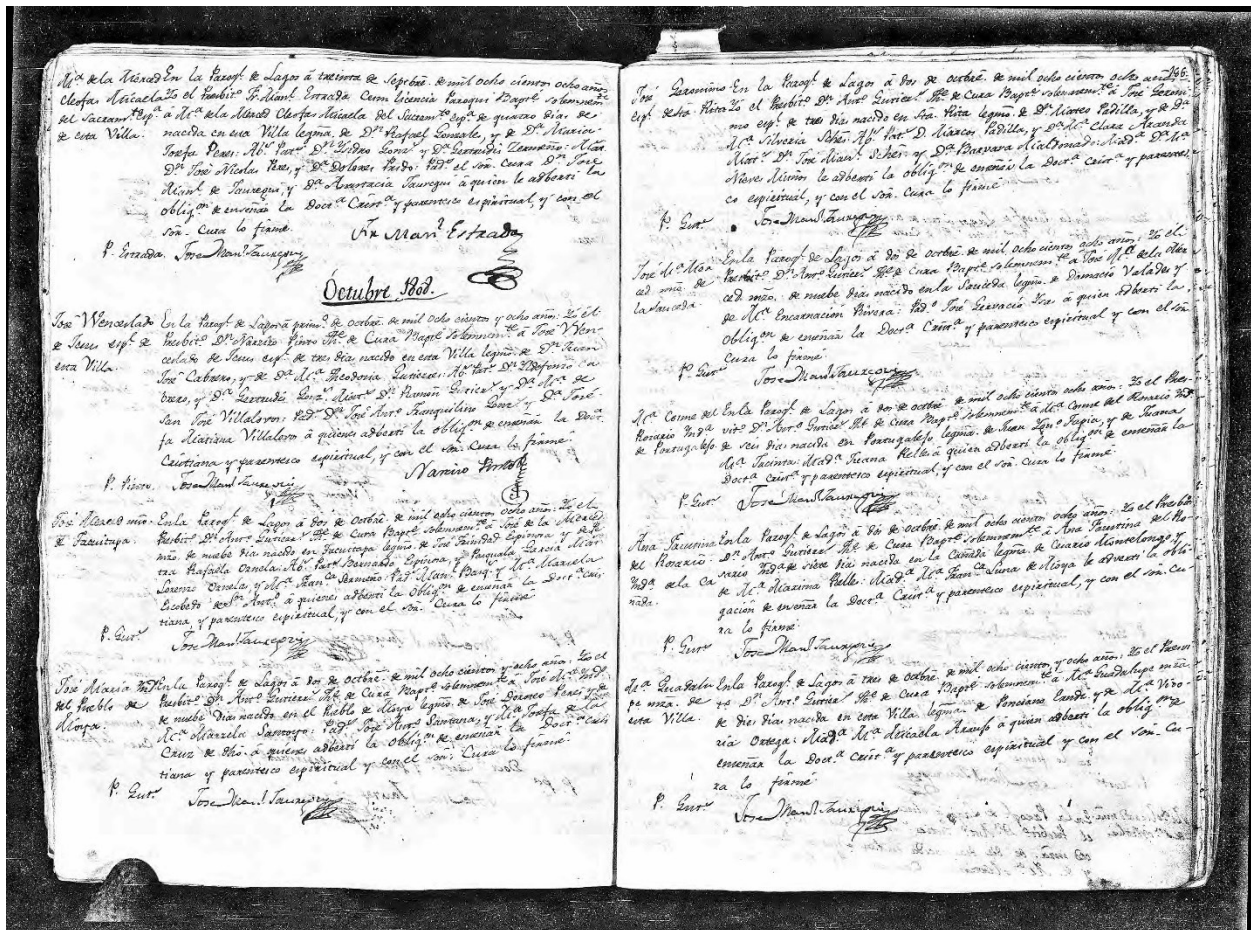 Mª de la Merced En la Parroqˡ de Lagos á treinta de Sepebrē. de mil ocho cientos ocho años
Cleofas Micaela Yo el Presbitº Fr. Manˡ Estrada Cum licencia Paroqui Baptᵉ solemnem
del Sacramᵗ espª á Mª de la Merced Cleofas Micaela del Sacramᵗᵒ espª de quatro dias. de
de esta Villa. nacida en esta Villa legma. de Dⁿ Rafael Gonzalᵉ, y de Dª Maria
Josefa Peres: Abˢ Patˢ Dⁿ Ysidro Gonzˢ y Dª Gertrudis Zermeño: Matˢ
Dⁿ José Nicolas Peres, y Dª Dolores Pardo: Padˢ el señ. Cura Dⁿ José
Manˡ de Jauregui, y Dª Anastacia Jauregui á quien le adbertí la
obligᵒⁿ de enseñar la Doctª Cristª y parentesco espiritual, y con el
señ. Cura lo firmé.
Fr Manˡ Estrada
P. Estrada. Jose Manˡ Jauregui
Octubre 1808.
José Wenceslado En la Parroqˡ de Lagos á primº de octbrē. de mil ocho cientos y ocho años: Yo el
de Jesus espˡ de Presbitº Dⁿ Narciso Pinto Thᵉ de Cura Baptᵉ solemnemᵗᵉ á José Wen
esta Villa. ceslado de Jesus espˡ de tres dias nacido en esta Villa legmo. de Dⁿ Juan
José Cabrero, y de Dª Mª Theodora Gutierrez: Abˢ Patˢ Dⁿ Yldefonso Ca
brero, y Dª Gertrudis Gonzˢ Matˢ Dⁿ Ramón Gutierrˢ y Dª Mª de
San José Villalovos: Padˢ Dⁿ José Antº Tranquilino Gonzˢ y Dª José
fa Mariana Villalovos á quienes adbertí la obligᵒⁿ de enseñar la Doctª
Cristiana y parentesco espiritual, y con el señ. Cura lo firmé.
Narciso Pinto
P. Pinto. Jose Manˡ Jauregui
José Merced mzo. En la Parroqˡ de Lagos á dos de octbrē. de mil ocho cientos ocho años: Yo el
de Jacuitapa. Presbitº Dⁿ Antº Gutierrˢ Thᵉ de Cura Baptᵉ solemnemᵗᵉ á José de la Merced
mzo. de nuebe dias nacido en legmo. de José Trinidad Espinosa y de
Rafaela Ornelas: Abˢ Patˢ Bernardo Espinosa, y Pasquala Garcia Matˢ
Lorenzo Ornelas, y Mª Franᶜª Sermeño: Padˢ y Mª Marcela
Escobedo de Sⁿ Antº á quienes adbertí la obligᵒⁿ de enseñar la Doctª Cris
tiana, y parentesco espiritual, y con el señ. Cura lo firmé
P. Gutˢ Jose Manˡ Jauregui
José Maria Yndº En la Parroqˡ de Lagos á dos de octbrē. de mil ocho cientos y ocho años: Yo el
del Pueblo de Presbitº Dⁿ Antº Gutierrˢ Thᵉ de Cura Baptᵉ solemnemᵗᵉ á José Mª Yndº
Moya. de nuebe Dias nacido en el Pueblo de Moya legmo. de José Doroteo Peres y de
Mª Marzela Santoyo: Padˢ José Antº Santana, y Mª Josefa de la
Cruz de dho. á quienes adbertí la obligᵒⁿ de enseñar la Doctª Cris
tiana y parentesco espiritual y con el señ. Cura lo firmé
P. Gutˢ Jose Manˡ Jauregui
186.
José Geronimo En la Parroqˡ de Lagos á dos de octbrē. de mil ocho cientos ocho años
espˡ de Sta Rita Yo el Presbitº Dⁿ Antº Gutierrˢ Thᵉ de Cura Baptᵉ solemnemᵗᵉ á José Geroni
mo espˡ de tres dias nacido en Sta. Rita legmo. de Dⁿ Mateo Padilla, y de Dª
Mª Silveria Schēs: Abˢ Patˢ Dⁿ Marcos Padilla, y Dª Mª Clara Aranda
Matˢ Dⁿ José Manˡ Schēs: y Dª Barvara Maldonado: Madª Dª Mª
Nieves Muños le adbertí la obligᵒⁿ de enseñar la Doctª Cristª y parentes
co espiritual, y con el señ. Cura lo firmé
P. Gutˢ Jose Manˡ Jauregui
José Mª Mer En la Parroqˡ de Lagos á dos de octbrē. de mil ocho cientos ocho años: Yo el
ced mzo. de Presbitº Dⁿ Antº Gutierrˢ Thᵉ de Cura Baptᵉ solemnemᵗᵉ á José Mª de la Mer
la Sauceda ced mzo. de nuebe dias nacido en la Sauceda legmo. de Valades y
de Mª Encarnacion Rivera: Padº José Gervacio á quien adbertí la
obligᵒⁿ de enseñar la Doctª Cristª y parentesco espiritual y con el señ.
Cura lo firmé
P. Gutˢ Jose Manˡ Jauregui
Mª Cosme del En la Parroqˡ de Lagos á dos de octbrē. de mil ocho cientos ocho años: Yo el Pres
Rosario Yndª vitº Dⁿ Antº Gutierrˢ Tht de Cura Baptᵉ solemnemᵗᵉ á Mª Cosme del Rosario Yndª
de Portugalejo de seis dias nacida en Portugalejo legma. de Juan Tapia, y de Juana
Mª Jacinta: Madª Juana á quien adbertí la obligᵒⁿ de enseñar la
Doctª Cristª y parentesco espiritual, y con el señ. Cura lo firmé
P. Gutˢ Jose Manˡ Jauregui
Ana Faustina En la Parroqˡ de Lagos á dos de octbrē. de mil ocho cientos ocho años: Yo el Presbitº
del Rosario Dⁿ Antº Gutierrˢ Thᵉ de Cura Baptᵉ solemnemᵗᵉ á Ana Faustina del Ro
Yndª de la Ca sario Yndª de siete dias nacida en la Cañada legma. de Montelongo, y
ñada. de Mª Maxima: Madª Mª Franᶜª Luna de Moya le advertí la obli
gación de enseñar la Doctª Cristª y parentesco espiritual, y con el señ. Cu
ra lo firmé
P. Gutˢ Jose Manˡ Jauregui
Mª Guadalu En la Parroqˡ de Lagos á tres de octbrē. de mil ocho cientos y ocho años: Yo el Presvi
pe mza. de tº Dⁿ Antº Gutierrˢ Thᵉ de Cura Baptᵉ solemnemᵗᵉ á Mª Guadalupe mza
esta Villa. de diez dias nacida en esta Villa legma. de Ponciano y de Mª Vito
ria Ortega: Madª Mª Micaela Araujo á quien adbertí la obligᵒⁿ de
enseñar la Doctª Cristª y parentesco espiritual y con el señ. Cu
ra lo firmé
P. Gutˢ Jose Manˡ Jauregui